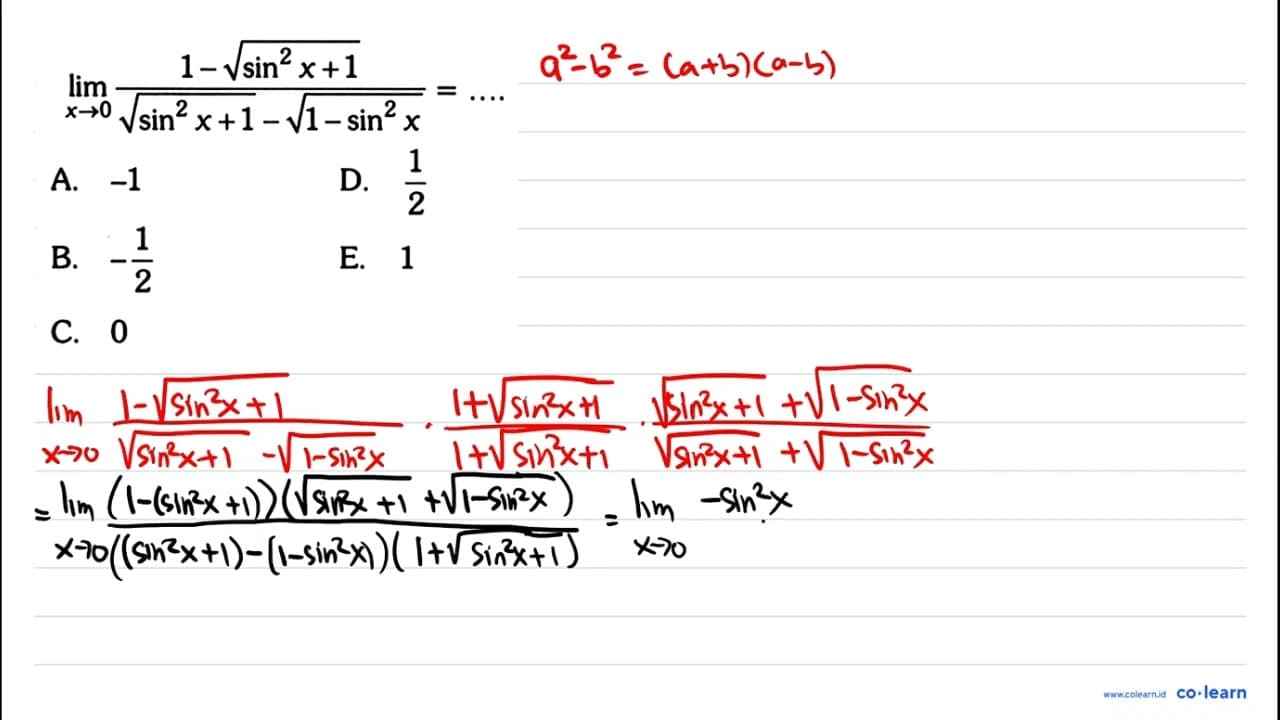 lim x→0 (1 − √(sin² x + 1)) / (√(sin² x + 1) − √(1 − sin² x)) = ....
a² − b² = (a+b)(a−b)
A. −1
D. 1/2
B. −1/2
E. 1
C. 0
lim x→0 (1 − √(sin²x + 1)) / (√(sin²x+1) − √(1 − sin²x)) · (1 + √(sin²x+1)) / (1 + √(sin²x+1)) · (√(sin²x+1) + √(1 − sin²x)) / (√(sin²x+1) + √(1 − sin²x))
= lim x→0 ((1 − (sin²x + 1))(√(sin²x + 1) + √(1 − sin²x))) / (((sin²x + 1) − (1 − sin²x))(1 + √(sin²x + 1))) = lim x→0 −sin²x
www.colearn.id co·learn